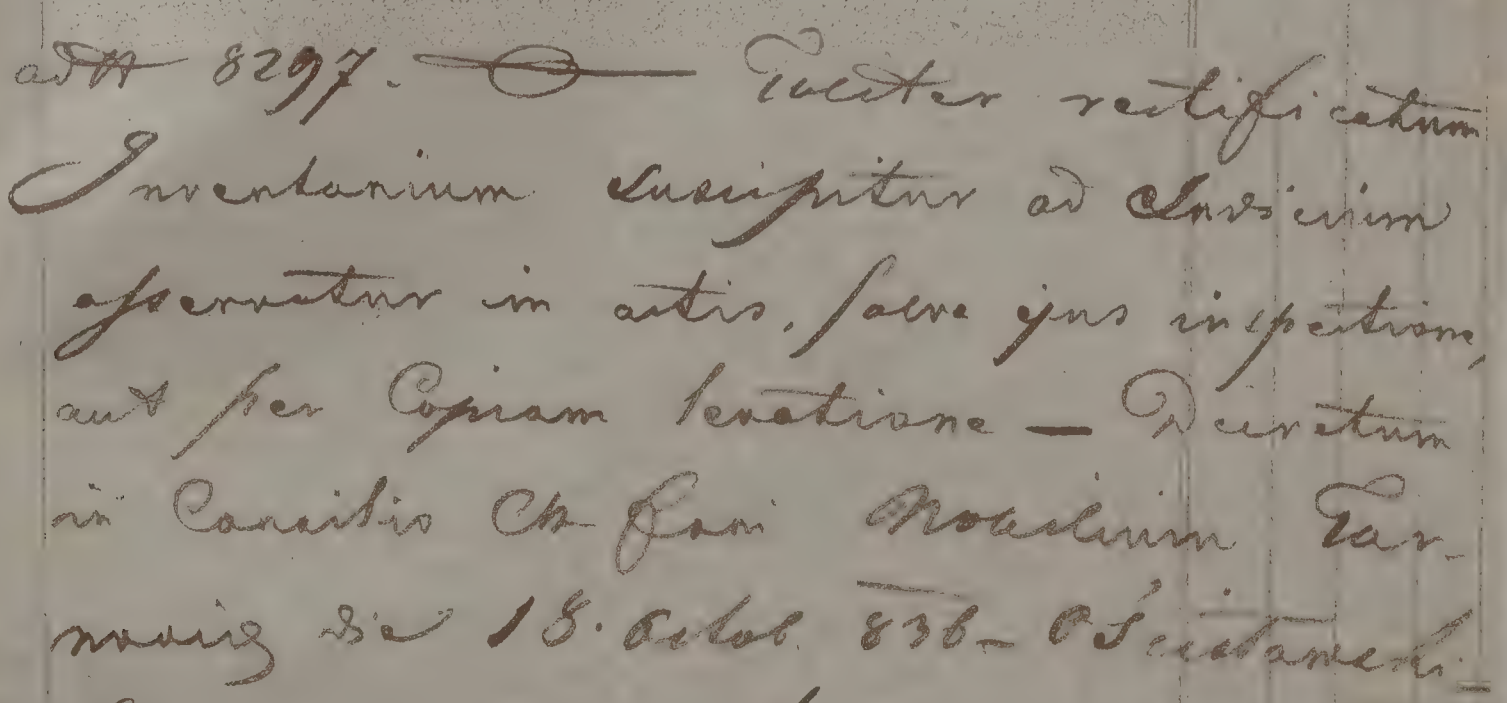 ad N 8297. — Taliter rectificatum
Inventarium suscipitur ad Judicium
asservatur in actis, salva ejus inspectione,
aut per Copiam levatione — Decretum
in Consilio Cs. Fori Nobilium Tar-
noviae die 18. Octob. 836 —